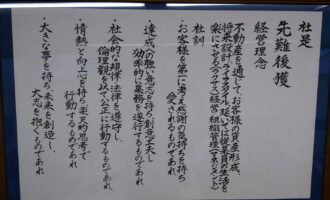 社是
先難後獲
経営理念
不動産を通じて、お客様の資産形成、
将来設計、ライフスタイル、延いては従業員の生活を
楽にさせる（ラクサス）経営・組織管理（マネジメント）
社訓
・お客様を第一に考え感謝の気持ちを持ち
愛されるものであれ
・達成への強い意志を持ち創意工夫し
効率的な業務を遂行するものであれ
・社会的な規律、法律を遵守し、
倫理観を以て公正に行動するものであれ
・情熱と向上心を持ち楽天的思考で
行動するものであれ
・大きな夢を持ち、未来を創造し、
大志を抱くものであれ